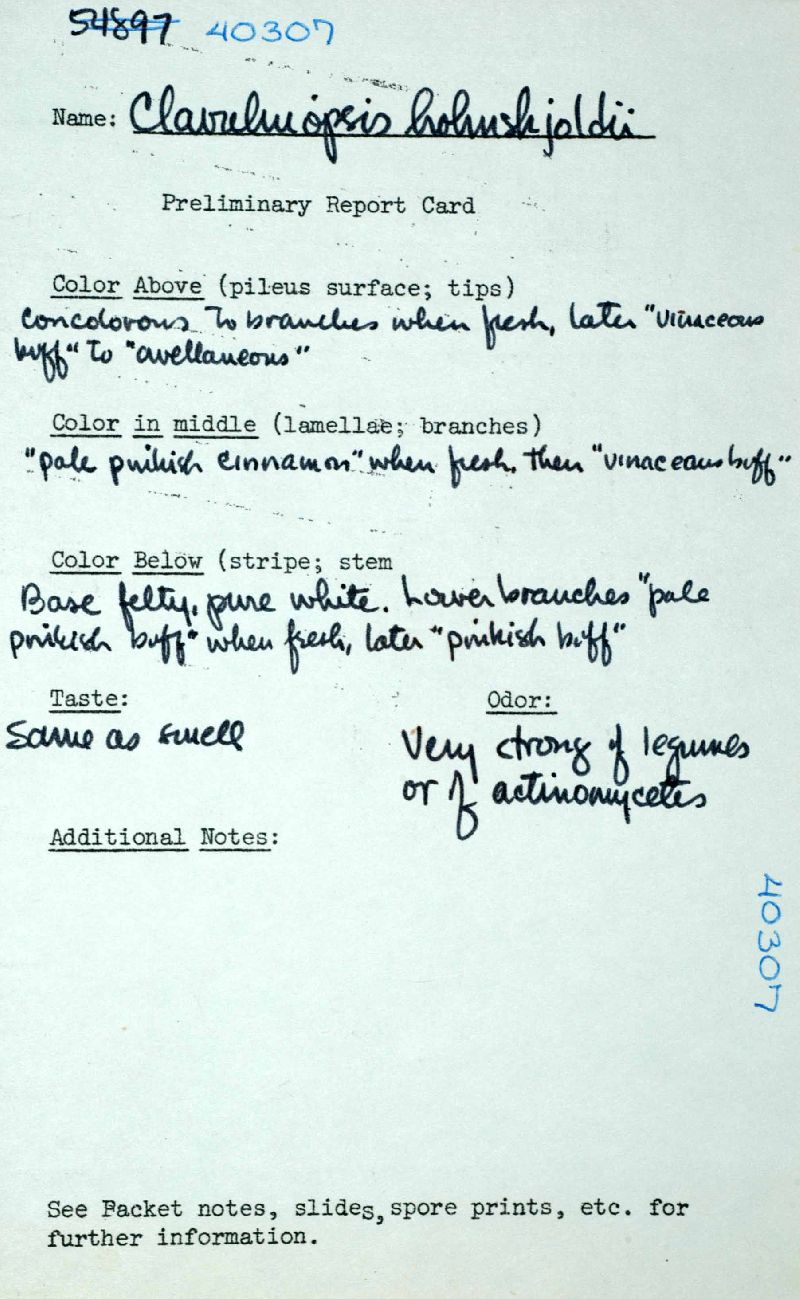 54897 40307
Name: Clavulinopsis holmskjoldii
Preliminary Report Card
Color Above (pileus surface; tips)
Concolorous To branches when fresh, later "vinaceous
buff" to "avellaneous"
Color in middle (lamellae; branches)
"pale pinkish cinnamon" when fresh, then "vinaceous buff"
Color Below (stripe; stem
Base felty, pure white. Lower branches "pale
pinkish buff" when fresh, later "pinkish buff"
Taste: Odor:
Same as smell Very strong of legumes
or of actinomycetes
Additional Notes:
40307
See Packet notes, slides, spore prints, etc. for
further information.